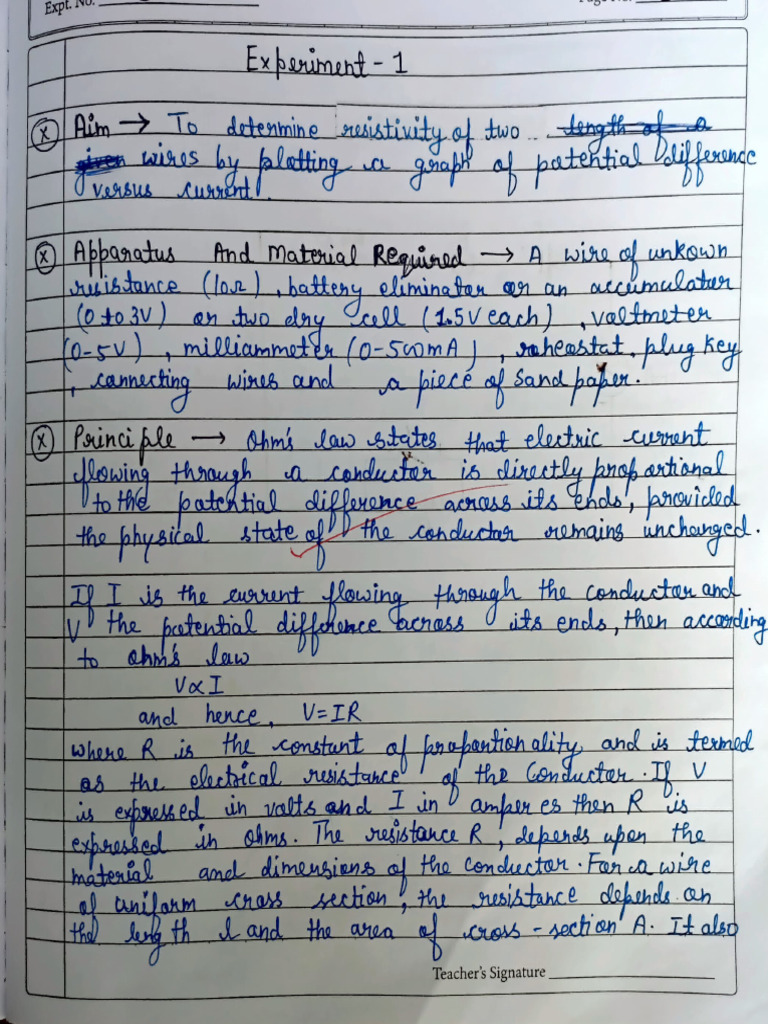 Expt. No.
Experiment - 1
Aim → To determine resistivity of two length of a
given wires by plotting a graph of potential difference
versus current.
Apparatus And Material Required → A wire of unkown
resistance (10Ω), battery eliminator or an accumulator
(0 to 3V) or two dry cell (1.5V each), voltmeter
(0-5V), milliammeter (0-500mA), roheostat, plug key
, connecting wires and a piece of sand paper.
Principle → Ohm's law states that electric current
flowing through a conductor is directly proportional
to the potential difference across its ends, provided
the physical state of the conductor remains unchanged.
If I is the current flowing through the conductor and
V the potential difference across its ends, then according
to ohm's law
V∝I
and hence, V=IR
where R is the constant of proportionality and is termed
as the electrical resistance of the Conductor. If V
is expressed in volts and I in amperes then R is
expressed in ohms. The resistance R, depends upon the
material and dimensions of the conductor. For a wire
of uniform cross section, the resistance depends on
the length l and the area of cross-section A. It also
Teacher's Signature